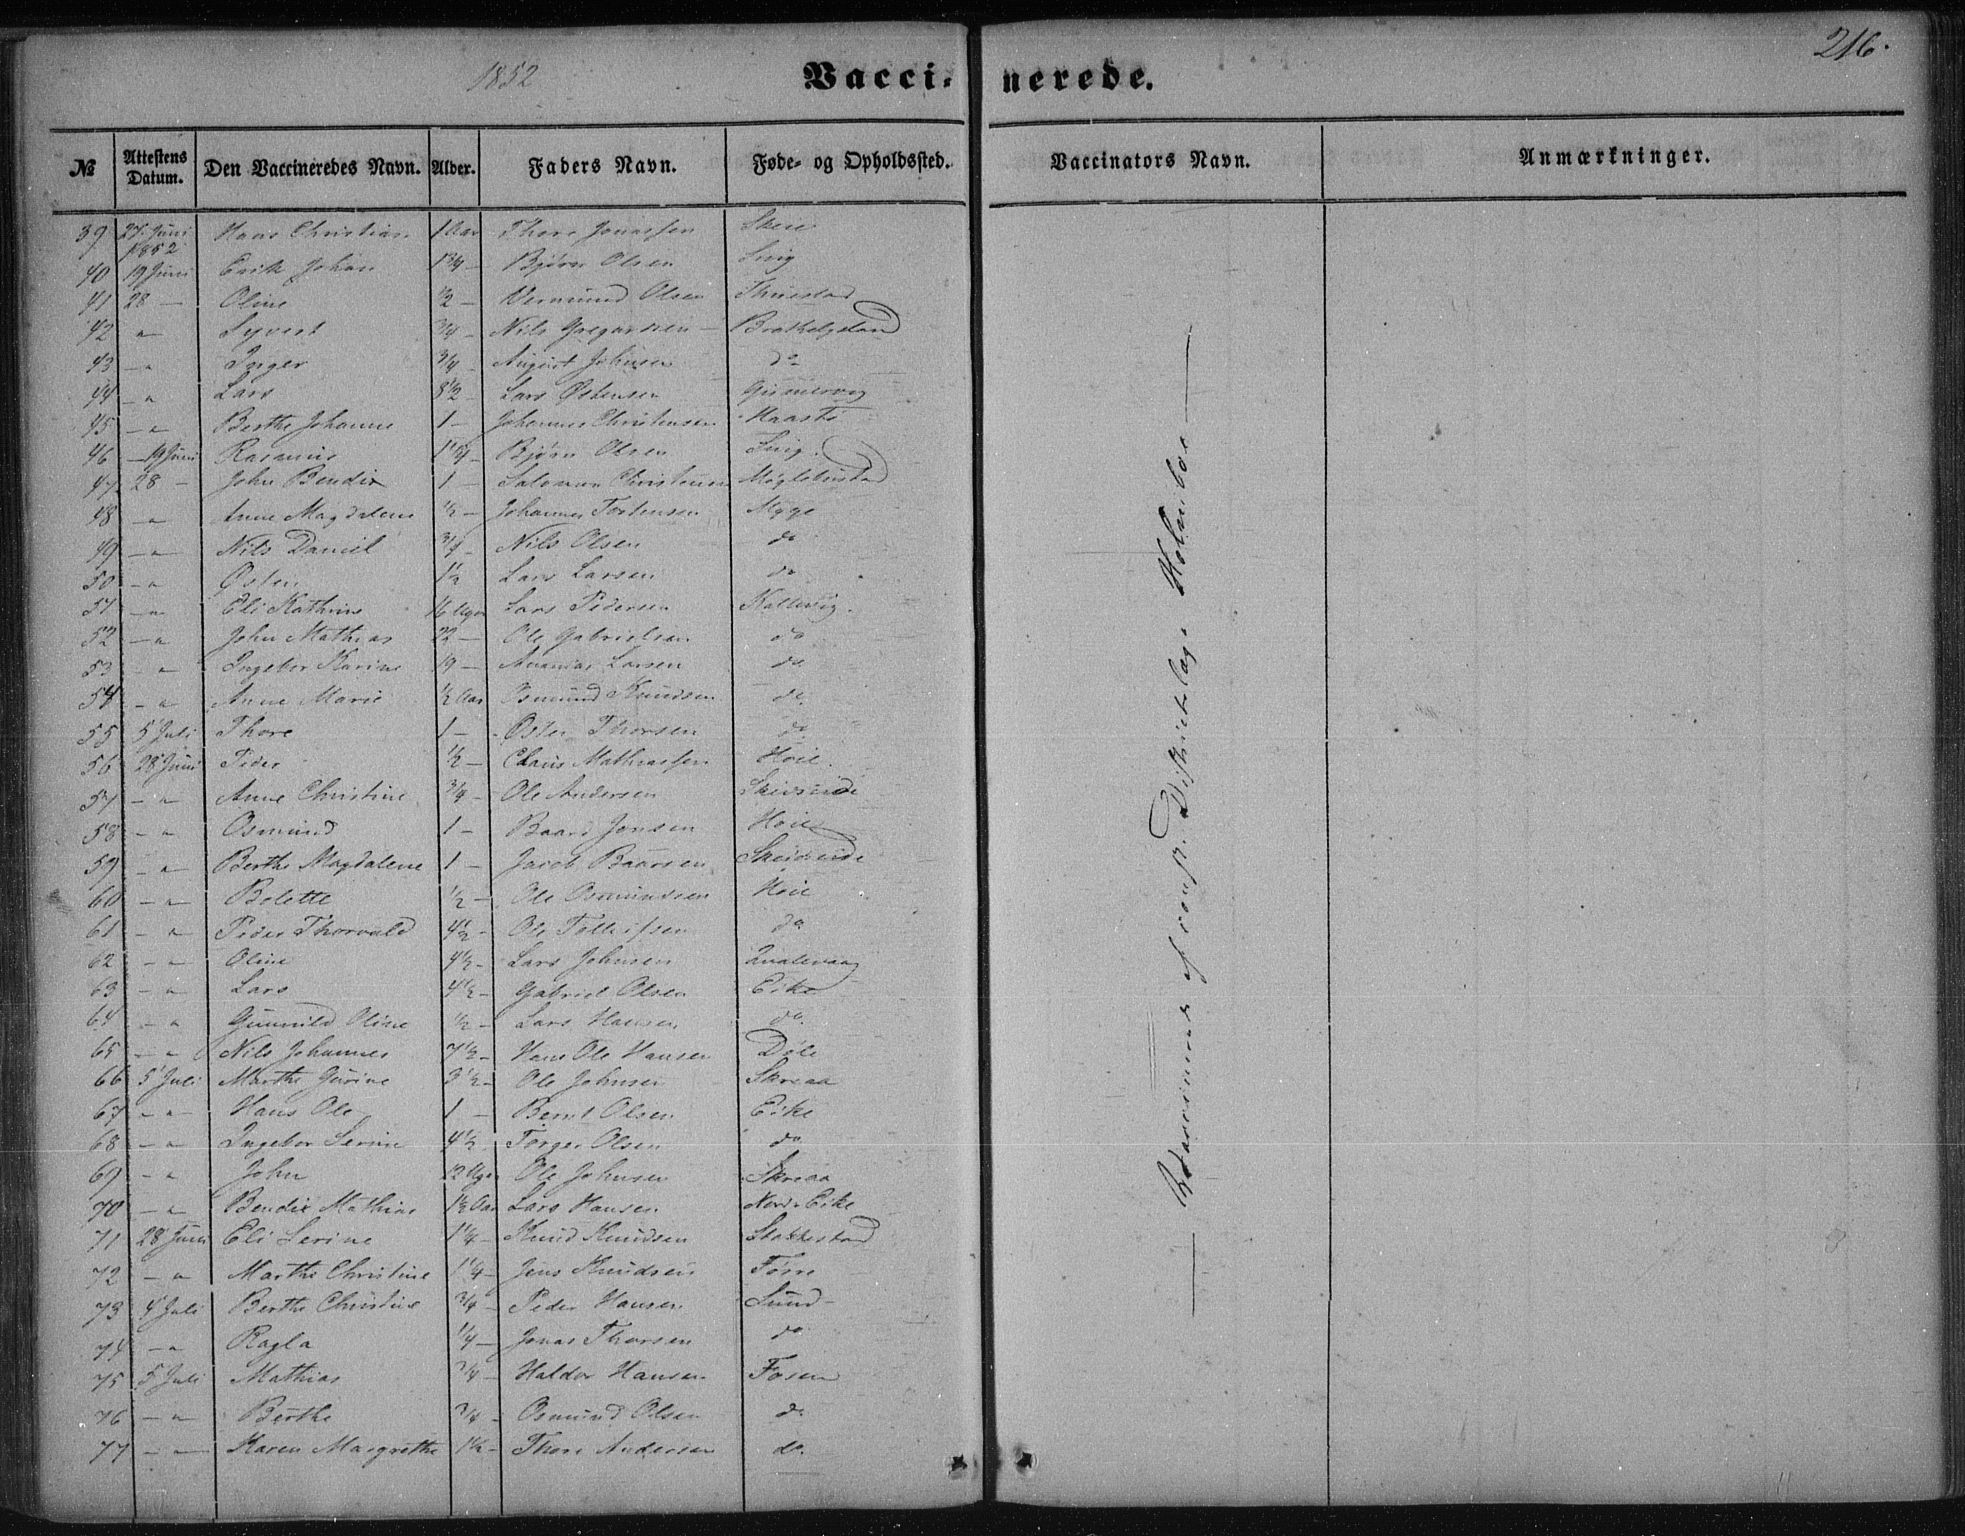 216.
1852
Vacci- nerede.
№ Attestens Datum. Den Vaccineredes Navn. Alder. Faders Navn. Føde- og Opholdssted. Vaccinators Navn. Anmærkninger.
39 27 Juni 1852 Hans Christian 1 Aar Thore Jonassen Skeie
40 19 Juni Erik Johan 1 3/4 - Bjørn Olsen
41 28 - Oline 1/2 - Vermund Olsen Thuestad
42 - " Syvert 3/4 - Nils Gregersen - Brathelgeland
43 - " Inger 3/4 - August Johnsen do
44 - " Lars 8 1/2 - Lars Østensen
45 - " Berthe Johanne 1 - Johannes Christensen Haastø
46 - 19 Juni Rasmus Bjørn Olsen
47 28 - John Bendix 1 - Salomon Christensen
48 - " Anne Magdalene 1/2 - Johannes Torstensen Myge
49 - " Nils Daniel 3/4 - Nils Olsen do
50 - " Østen 1 1/2 Lars Larsen do
51 - " Eli Kathrine 16 Uger Lars Pedersen Kallevig.
52 - " John Mathias 22 - Ole Gabrielsen do
53 - " Ingebor Karine 19 - Ananias Larsen do
54 - " Anne Marie 1/2 Aar Osmund Knudsen do.
55 5 Juli Thore 1 - Østen Thorsen do
56 28 Juni Peder 1/2 - Claus Mathiassen Høie.
57 - " Anne Christine 3/4 - Ole Andersen Skeiseide
58 - " Osmund 1 - Baard Jonsen Høie
59 - " Berthe Magdalene 1 - Jacob Baarsen Skeiseide
60 - " Bolette 1/2 - Ole Osmundsen Høie
61 - " Peder Thorvald 4 1/2 - Ole Tollefsen do
62 - " Oline 4 1/2 - Lars Johnsen Qvalevaag
63 - " Lars 4 1/2 - Gabriel Olsen Eike
64 - " Gunnild Oline 1/2 - Lars Hansen do.
65 - " Nils Johannes 7 1/2 - Hans Ole Hansen Døle
66 5 Juli Marthe Gurine 3 1/2 - Ole Johnsen Skreaa
67 - " Hans Ole 1 - Bernt Olsen Eike
68 - " Ingebor Serine 4 1/2 - Torger Olsen do
69 - " John 12 Uger Ole Johnsen Skreaa
70 - " Bendix Mathias 1 1/2 Aar Lars Hansen Nord-Eike
71 28 Juni Eli Serine 1 1/4 - Knud Knudsen Stakkestad
72 - " Marthe Christine 1 1/4 - Jens Knudsen Førre
73 4 Juli Berthe Christine 3/4 - Peder Hansen Sund -
74 - " Ragla 1/4 - Jonas Thorsen do
75 5 Juli Mathias 3/4 - Haldor Hansen Fosen
76 - " Berthe 3/4 - Osmund Olsen do
77 - " Karen Margrethe 1 1/2 - Thore Andersen do.
af const. Districtslæge Holmboe